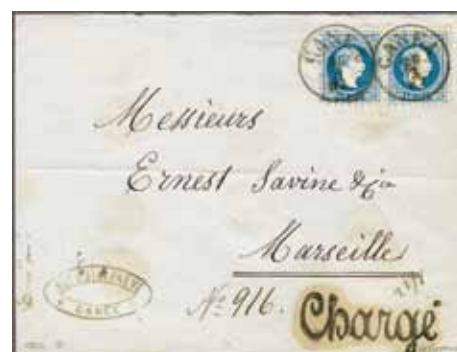 CANEA
CANEA
Messieurs
Ernest Savine & Cie
Marseille
No 916.
CANEE
Chargé